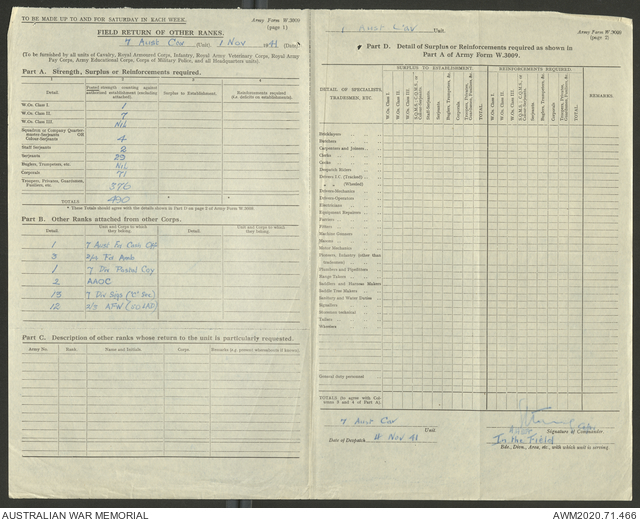 TO BE MADE UP TO AND FOR SATURDAY IN EACH WEEK.
Army Form W.3009
(page 1)
FIELD RETURN OF OTHER RANKS.
7 Aust Cav (Unit) 1 Nov 1941 (Date)
(To be furnished by all units of Cavalry, Royal Armoured Corps, Infantry, Royal Army Veterinary Corps, Royal Army
Pay Corps, Army Educational Corps, Corps of Military Police, and all Headquarters units).
Part A. Strength, Surplus or Reinforcements required.
Detail.
Posted strength counting against authorised establishment (excluding attached).
Surplus to Establishment.
Reinforcements required (i.e. deficits on establishment).
W.Os. Class I. 1
W.Os. Class II. 7
W.Os. Class III. Nil
Squadron or Company Quarter-
master-Serjeants OR
Colour-Serjeants 4
Staff Serjeants 2
Serjeants 29
Buglers, Trumpeters, etc. Nil
Corporals 71
Troopers, Privates, Guardsmen,
Fusiliers, etc. 376
TOTALS 490
* These Totals should agree with the details shown in Part D on page 2 of Army Form W.3009.
Part B. Other Ranks attached from other Corps.
Detail.
Unit and Corps to which they belong.
Detail.
Unit and Corps to which they belong.
1 7 Aust Fd Cash Off
3 Fd. Amb
1 7 Div Postal Coy
2 AAOC
13 7 Div Sigs ("C" Sec)
12 AFW (LAD)
Part C. Description of other ranks whose return to the unit is particularly requested.
Army No.
Rank.
Name and Initials.
Corps.
Remarks (e.g. present whereabouts if known).
7 Aust Cav Unit.
Army Form W.3009
(page 2)
Part D. Detail of Surplus or Reinforcements required as shown in
Part A of Army Form W.3009.
DETAIL OF SPECIALISTS,
TRADESMEN, ETC.
SURPLUS TO ESTABLISHMENT.
REINFORCEMENTS REQUIRED.
REMARKS.
W.Os. Class I.
W.Os. Class II.
W.Os. Class III.
S.Q.M.S., C.Q.M.S. or Colour-Serjeants
Staff-Serjeants.
Serjeants.
Buglers, Trumpeters, &c.
Corporals
Troopers, Privates, Guardsmen, Fusiliers, &c.
TOTAL.
W.Os. Class I.
W.Os. Class II.
W.Os. Class III.
S.Q.M.S., C.Q.M.S. or Colour-Serjeants
Staff-Serjeants.
Serjeants.
Buglers, Trumpeters, &c.
Corporals
Troopers, Privates, Guardsmen, Fusiliers, &c.
TOTAL.
Bricklayers
Butchers
Carpenters and Joiners
Clerks
Cooks
Despatch Riders
Drivers I.C. (Tracked)
" " (Wheeled)
Drivers-Mechanics
Drivers-Operators
Electricians
Equipment Repairers
Farriers
Fitters
Machine Gunners
Masons
Motor Mechanics
Pioneers, Infantry (other than
tradesmen)
Plumbers and Pipefitters
Range Takers
Saddlers and Harness Makers
Saddle Tree Makers
Sanitary and Water Duties
Signallers
Storemen technical
Tailors
Waiters
General duty personnel
TOTALS (to agree with Col-
umns 3 and 4 of Part A).
7 Aust Cav Unit.
Date of Despatch Nov 41
Signature of Commander.
In the Field
Bde., Divn., Area, etc., with which unit is serving.
AUSTRALIAN WAR MEMORIAL
AWM2020.71.466